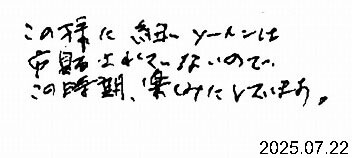 この様に細いソーメンは
市販されていないので
この時期、楽しみにしています。
2025.07.22